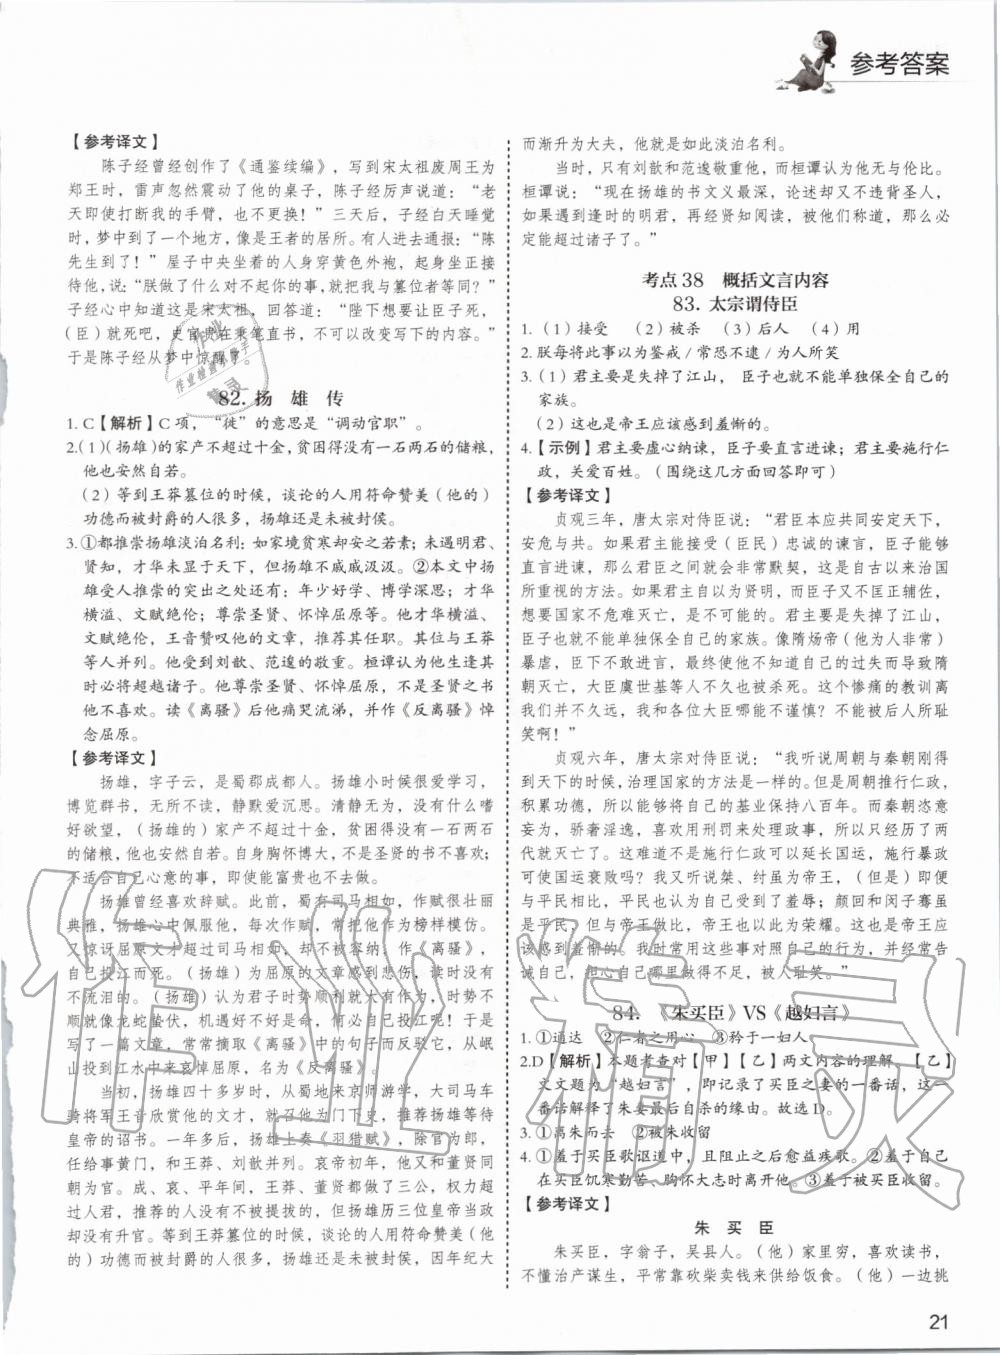 参考答案
【参考译文】
陈子经曾经创作了《通鉴续编》，写到宋太祖废周王为
郑王时，雷声忽然震动了他的桌子，陈子经厉声说道：“老
天即使打断我的手臂，也不更换！”三天后，子经白天睡觉
时，梦中到了一个地方，像是王者的居所。有人进去通报：“陈
先生到了！”屋子中央坐着的人身穿黄色外袍，起身对他
说：“朕做了什么对不起你的事，让你把我与篡位者等同？”
子经心中知道是宋太祖，回答道：“陛下想要让臣子死，
（臣）就死吧，史官贵在秉笔直书，不可以改变写下的内容。”
于是陈子经从梦中惊醒了。
82. 扬 雄 传
1. C【解析】C项，“徙”的意思是“调动官职”。
2.(1)(扬雄)的家产不超过十金，贫困得没有一石两石的储粮，
他也安然自若。
（2）等到王莽篡位的时候，谈论的人用符命赞美（他的）
功德而被封爵的人很多，扬雄还是未被封侯。
3.①都推崇扬雄淡泊名利：如家境贫寒却安之若素；未遇明君、
贤知，才华未显于天下，但扬雄不戚戚汲汲。②本文中扬
雄受人推崇的突出之处还有：年少好学、博学深思；才华
横溢、文赋绝伦；尊崇圣贤、怀悼屈原。他才华横溢、
文赋绝伦，王音赞叹他的文章，推荐其任职。其位与王莽
等人并列。他受到刘歆、范逡的敬重。桓谭认为他生逢其
时必将超越诸子。他尊崇圣贤、怀悼屈原，不是圣贤之书
他不喜欢。读《离骚》后他痛哭流涕，并作《反离骚》悼
念屈原。
【参考译文】
扬雄，字子云，是蜀郡成都人。扬雄小时候很爱学习，
博览群书，无所不读，静默爱沉思。清静无为，没有什么嗜
好欲望，（扬雄的）家产不超过十金，贫困得没有一石两石
的储粮，他也安然自若。自身胸怀博大，不是圣贤的书不喜欢；
不适合自己心意的事，即使能富贵也不干。
扬雄曾经喜欢辞赋。此前，蜀有司马相如，作赋很壮丽
典雅，扬雄心中佩服他，每次作赋，常把他作为榜样模仿。
又惊讶屈原文才超过司马相如，却不被容纳，作《离骚》，
自己投江而死。（扬雄）为屈原的文章感到悲伤，读时没有
不流泪的。（扬雄）认为君子时势顺利就大有作为，时势不
顺就像龙蛇蛰伏，机遇好不好是命，何必自己投江呢！于是
写了一篇文章，常常摘取《离骚》中的句子而反驳它，从岷
山投到江水中来哀悼屈原，名为《反离骚》。
当初，扬雄四十多岁时，从蜀地来京师游学，大司马车
骑将军王音欣赏他的文才，就召他为门下史，推荐扬雄等待
皇帝的诏书。一年多后，扬雄上奏《羽猎赋》，除官为郎，
任给事黄门，和王莽、刘歆并列。哀帝初年，他又和董贤同
官。成、哀、平年间，王莽、董贤都做了三公，权力超
过人君，推荐的人没有不被提拔的，但扬雄历经三位皇帝当
没有升官。等到王莽篡位的时候，谈论的人用符命赞美（他
的）功德而被封爵的人很多，扬雄还是未被封侯，因年纪大
而渐升为大夫，他就是如此淡泊名利。
当时，只有刘歆和范逡敬重他，而桓谭认为他无与伦比。
桓谭说：“现在扬雄的书文义最深，论述却又不违背圣人，
如果遇到逢时的明君，再经贤知阅读，被他们称道，那么必
定能超过诸子了。”
考点 38 概括文言内容
83. 太宗谓侍臣
1.（1）接受 （2）被杀 （3）后人 （4）用
2. 朕每将此事以为鉴戒 / 常恐不逮 / 为人所笑
3.（1）君主要是失掉了江山， 臣子也就不能单独保全自己的
家族。
（2）这也是帝王应该感到羞惭的。
4.【示例】君主要虚心纳谏，臣子要直言进谏；君主要施行仁
政，关爱百姓。（围绕这几方面回答即可）
【参考译文】
贞观三年，唐太宗对侍臣说：“君臣本应共同安定天下，
安危与共。如果君主能接受（臣民）忠诚的谏言，臣子能够
直言进谏，那么君臣之间就会非常默契，这是自古以来治国
所重视的方法。如果君主自以为贤明，而臣子又不匡正辅佐，
想要国家不危难灭亡，是不可能的。君主要是失掉了江山，
臣子也就不能单独保全自己的家族。像隋炀帝（他为人非常）
暴虐，臣下不敢进言，最终使他不知道自己的过失而导致隋
朝灭亡，大臣虞世基等人不久也被杀死。这个惨痛的教训离
我们并不久远，我和各位大臣哪能不谨慎？不能被后人所耻
笑啊！”
贞观六年，唐太宗对侍臣说：“我听说周朝与秦朝刚得
到天下的时候，治理国家的方法是一样的。但周朝推行仁政，
积累功德，所以能够将自己的基业保持八百年。而秦朝恣意
妄为，骄奢淫逸，喜欢用刑罚来处理政事，所以只经历了两
代就灭亡了。这难道不是施行仁政可以延长国运，施行暴政
可使国运衰败吗？我又听说桀、纣虽为帝王，（但如果）即便
与平民相比，平民也认为自己受到了羞辱；颜回和闵子骞虽
是平民，但如果与帝王相比，帝王也以此为荣耀。这也是帝王应该
感到羞惭的。我时常用这两件事来反思自己的行为，并经常告
诫自己，担心自己哪里做得不足，被人耻笑。”
84. 《朱买臣》VS《越妇言》
1. ①通达 ②仁者之用心 ③矜于一妇人
2.D【解析】本题考查对【甲】【乙】两文内容的理解。【乙】
文文题为“越妇言”，即记录了买臣之妻的一番话，这一
番话解释了朱妻最后自杀的缘由。故选D。
3. ①离朱而去 ②被朱收留
4. ①羞于买臣歌讴道中，且阻止之后愈益疾歌。②羞于离开
在买臣饥寒勤苦、胸怀大志时离开他。③羞于被买臣收留。
【参考译文】
朱 买 臣
朱买臣，字翁子，吴县人。（他）家里穷，喜欢读书，
不懂治产谋生，平常靠砍柴卖钱来供给饭食。（他）一边挑
21
作业精灵